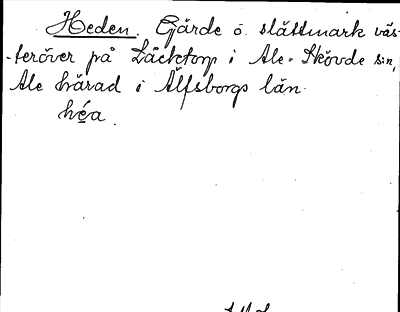 Heden. Gärde o. slåttmark väs-
-teröver på Läcktorp i Ale-Skövde sn,
Ale härad i Älfsborgs län.
héa.